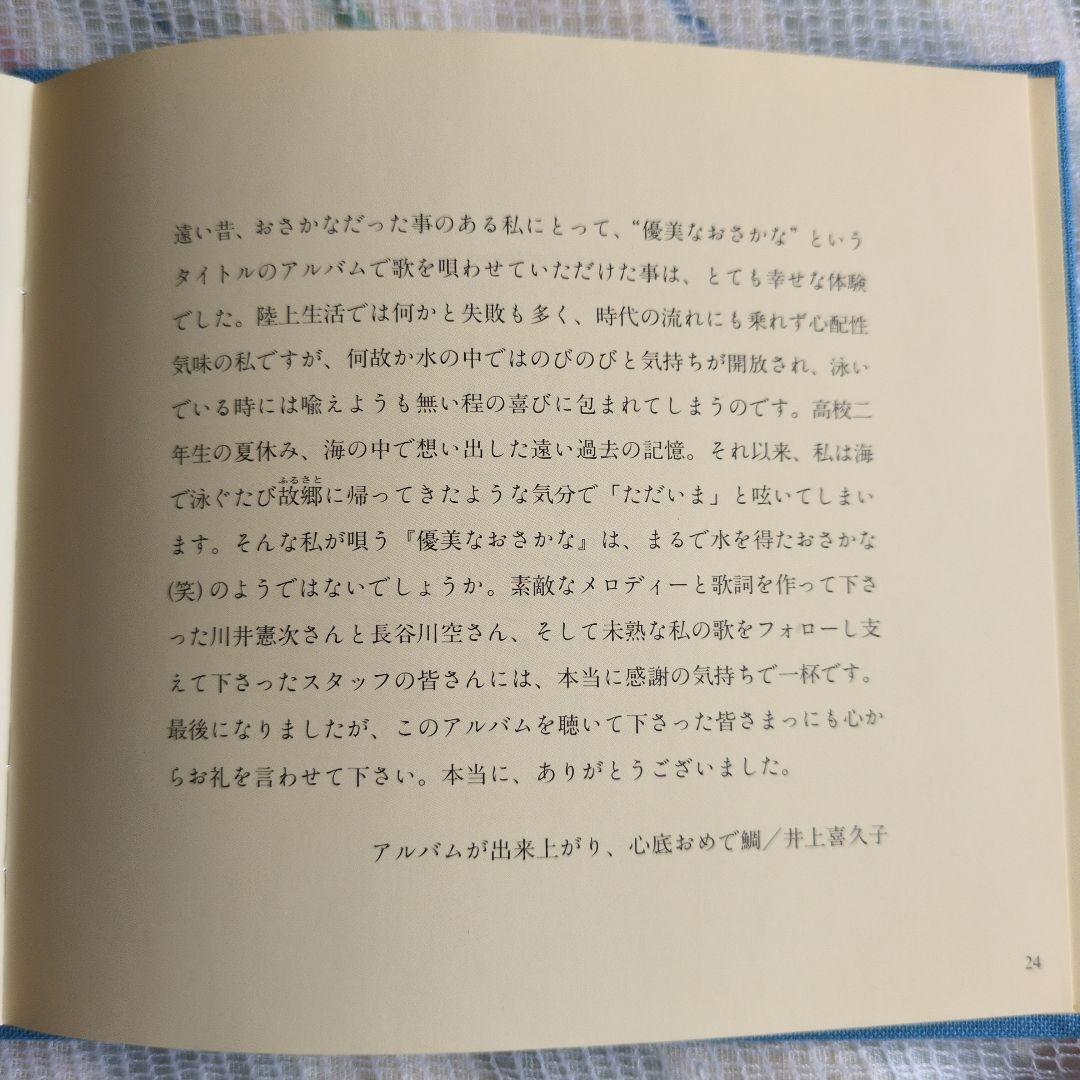 遠い昔、おさかなだった事のある私にとって、“優美なおさかな”という
タイトルのアルバムで歌を唄わせていただけた事は、とても幸せな体験
でした。陸上生活では何かと失敗も多く、時代の流れにも乗れず心配性
気味の私ですが、何故か水の中ではのびのびと気持ちが開放され、泳い
でいる時には喩えようも無い程の喜びに包まれてしまうのです。高校二
年生の夏休み、海の中で想い出した遠い過去の記憶。それ以来、私は海
ふるさと
で泳ぐたび故郷に帰ってきたような気分で「ただいま」と呟いてしまい
ます。そんな私が唄う『優美なおさかな』は、まるで水を得たおさかな
(笑)のようではないでしょうか。素敵なメロディーと歌詞を作って下さ
った川井憲次さんと長谷川空さん、そして未熟な私の歌をフォローし支
えて下さったスタッフの皆さんには、本当に感謝の気持ちで一杯です。
最後になりましたが、このアルバムを聴いて下さった皆さまっにも心か
らお礼を言わせて下さい。本当に、ありがとうございました。
アルバムが出来上がり、心底おめで鯛／井上喜久子
24